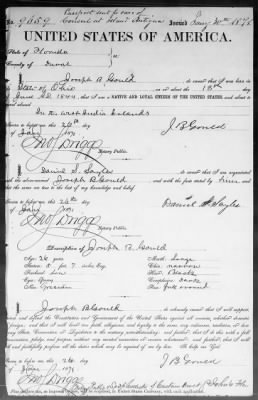 No 9659
Passport sent to care of
Consul at Island Antigua
Issued Jany 30th 1871
UNITED STATES OF AMERICA.
State of Florida
County of Duval
I, Joseph B. Gould do swear that I was born
in the State of Ohio on or about the 18th day
of June 1844 that I am a NATIVE AND LOYAL CITIZEN OF THE UNITED STATES, and about to travel
In the West India Islands
Sworn to before me, this 26th day
of Jany 1871
J B Gould
Jno Driggs
Notary Public.
I, Daniel S. Sayles do swear that I am acquainted
with the above-named Joseph B Gould and with the facts stated by him, and
that the same are true to the best of my knowledge and belief.
Sworn to before me, this 26th day
of Jany 1871
Daniel S. Sayles
Jno Driggs
Notary Public.
Description of Joseph B. Gould
Age: 26 years
Mouth: Large
Stature: 5 feet 7 inches, Eng.
Chin: narrow
Hair: Black
Complexion: dark
Face:
I, Joseph B Gould do solemnly swear that I will support, protect
and defend the Constitution and Government of the United States against all enemies, whether domestic
or foreign; and that I will bear true faith, allegiance and loyalty to the same, any ordinance, resolution or law
of any State, Convention or Legislature to the contrary notwithstanding; and further, that I do this with a full
determination, pledge, and purpose, without any mental reservation or evasion whatsoever; and further, that I will
well and faithfully perform all the duties which may be required of me by law. So help me God.
Sworn to before me, this 26 day
of Jany 1871
J B Gould
Jno Driggs
Notary Public